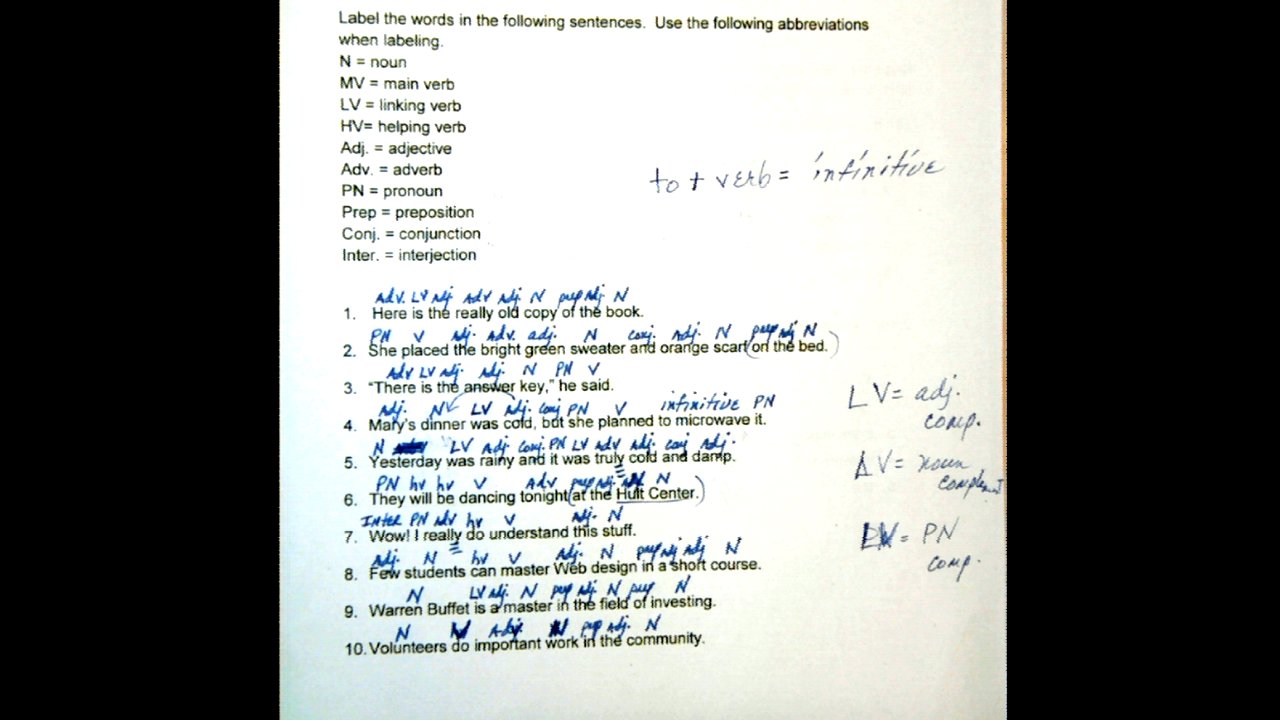 Label the words in the following sentences.  Use the following abbreviations
when labeling.
N = noun
MV = main verb
LV = linking verb
HV= helping verb
Adj. = adjective
Adv. = adverb
to + verb = infinitive
PN = pronoun
Prep = preposition
Conj. = conjunction
Inter. = interjection
Adv. LV adj adv adj N prep adj N
1. Here is the really old copy of the book.
PN V adj. Adv. adj. N conj. Adj. N prep adj N
2. She placed the bright green sweater and orange scarf (on the bed.)
Adv LV adj. adj. N PN V
3. "There is the answer key," he said.
LV= adj.
comp.
adj. N LV adj. conj PN V infinitive PN
4. Mary's dinner was cold, but she planned to microwave it.
N LV Adj conj. PN LV Adv adj. conj adj.
5. Yesterday was rainy and it was truly cold and damp.
LV= noun
PN hv hv V Adv prep adj. N
6. They will be dancing tonight (at the Hult Center.)
Inter PN adv hv V adj. N
7. Wow! I really do understand this stuff.
= PN
comp.
Adj. N hv V Adj. N prep adj adj N
8. Few students can master Web design in a short course.
N LV adj. N prep adj. N prep N
9. Warren Buffet is a master in the field of investing.
N V Adj. N prep adj. N
10. Volunteers do important work in the community.